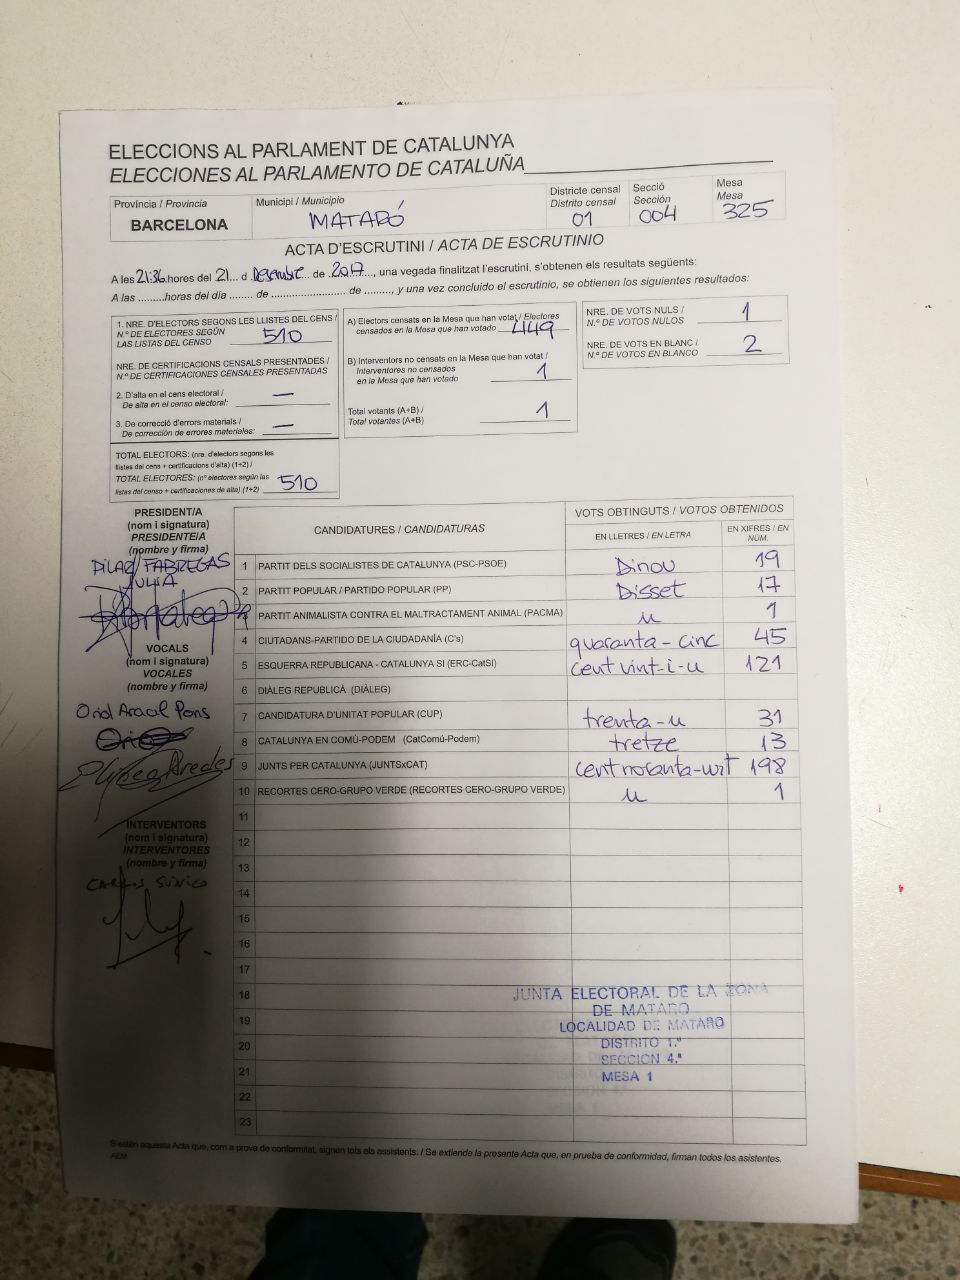 ELECCIONS AL PARLAMENT DE CATALUNYA
ELECCIONES AL PARLAMENTO DE CATALUÑA
Província / Provincia
BARCELONA
Municipi / Municipio
MATARÓ
Districte censal
Distrito censal
01
Secció
Sección
004
Mesa
Mesa
325
ACTA D'ESCRUTINI / ACTA DE ESCRUTINIO
A les 21:36 hores del 21 d Desembre de 2017, una vegada finalitzat l'escrutini, s'obtenen els resultats següents:
A las .........horas del día ....... de ........................ de ........, y una vez concluido el escrutinio, se obtienen los siguientes resultados:
1. NRE. D'ELECTORS SEGONS LES LLISTES DEL CENS /
N.º DE ELECTORES SEGÚN
LAS LISTAS DEL CENSO 510
NRE. DE CERTIFICACIONS CENSALS PRESENTADES /
N.º DE CERTIFICACIONES CENSALES PRESENTADAS
2. D'alta en el cens electoral /
De alta en el censo electoral: —
3. De correcció d'errors materials /
De corrección de errores materiales: —
TOTAL ELECTORS: (nre. d'electors segons les
llistes del cens + certificacions d'alta) (1+2) /
TOTAL ELECTORES: (nº electores según las
listas del censo + certificaciones de alta) (1+2) 510
A) Electors censats en la Mesa que han votat / Electores
censados en la Mesa que han votado 449
B) Interventors no censats en la Mesa que han votat /
Interventores no censados
en la Mesa que han votado 1
Total votants (A+B) /
Total votantes (A+B) 1
NRE. DE VOTS NULS /
N.º DE VOTOS NULOS 1
NRE. DE VOTS EN BLANC /
N.º DE VOTOS EN BLANCO 2
PRESIDENT/A
(nom i signatura)
PRESIDENTE/A
(nombre y firma)
PILAR FABREGAS
JULIA
VOCALS
(nom i signatura)
VOCALES
(nombre y firma)
Oriol Aracil Pons
INTERVENTORS
(nom i signatura)
INTERVENTORES
(nombre y firma)
CARLOS
CANDIDATURES / CANDIDATURAS
VOTS OBTINGUTS / VOTOS OBTENIDOS
EN LLETRES / EN LETRA
EN XIFRES / EN
NÚM.
1 PARTIT DELS SOCIALISTES DE CATALUNYA (PSC-PSOE) Dinou 19
2 PARTIT POPULAR / PARTIDO POPULAR (PP) Disset 17
3 PARTIT ANIMALISTA CONTRA EL MALTRACTAMENT ANIMAL (PACMA) u 1
4 CIUTADANS-PARTIDO DE LA CIUDADANÍA (C's) quaranta-cinc 45
5 ESQUERRA REPUBLICANA - CATALUNYA SI (ERC-CatSI) cent vint-i-u 121
6 DIÀLEG REPUBLICÀ (DIÀLEG)
7 CANDIDATURA D'UNITAT POPULAR (CUP) trenta-u 31
8 CATALUNYA EN COMÚ-PODEM (CatComú-Podem) tretze 13
9 JUNTS PER CATALUNYA (JUNTSxCAT) cent noranta-vuit 198
10 RECORTES CERO-GRUPO VERDE (RECORTES CERO-GRUPO VERDE) u 1
11
12
13
14
15
16
17
18
19
20
21
22
23
JUNTA ELECTORAL DE LA ZONA
DE MATARO
LOCALIDAD DE MATARO
DISTRITO 1.º
SECCION 4.ª
MESA 1
S'estén aquesta Acta que, com a prova de conformitat, signen tots els assistents. / Se extiende la presente Acta que, en prueba de conformidad, firman todos los asistentes.